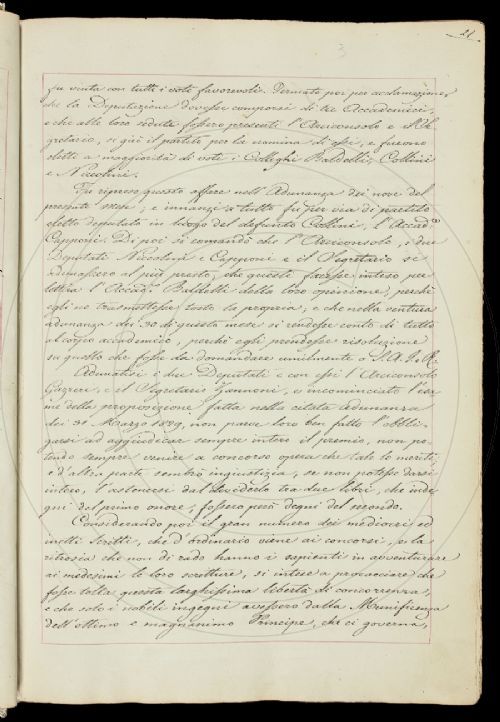 21.
3
fu vinta con tutti i voti favorevoli. Fermato poi per acclamazione,
che la Deputazione dovesse comporsi di tre Accademici,
e che alle loro sedute fossero presenti l'Arciconsolo e il Se-
gretario, si gì il partito per la nomina di essi, e furono
eletti a maggiorità di voti i Colleghi Baldelli, Collini
e Niccolini.
Fu ripreso questo affare nell'Adunanza dei nove del
presente mese; e innanzi a tutto fu per via di partito
eletto deputato in luogo del defunto Collini, l'Accad.co
Capponi. Di poi si comandò che l'Arciconsolo, i due
Deputati Niccolini e Capponi e il Segretario si
adunassero al più presto, che questi facesse inteso per
lettera l'Accad.o Baldelli della loro opinione, perchè
egli ne trasmettesse tosto la propria; e che nella ventura
adunanza dei 30 di questo mese si rendesse conto di tutto
al corpo accademico, perchè egli prendesse risoluzione
su quello che fosse da domandare umilmente a S.A.I. e R.
Adunatisi i due Deputati e con essi l'Arciconsolo
Gazzeri, e il Segretario Zannoni, e incominciato l'esa-
me della proposizione fatta nella citata Adunanza
dei 31 Marzo 1829, non parve loro ben fatto l'obbli-
garsi ad aggiudicare sempre intero il premio, non po-
tendo sempre venire a concorso opera che tale lo meriti;
e d'altra parte sembrò ingiustizia, se non potesse darsi
intero, l'astenersi dal dividerlo tra due libri, che inde-
gni del primo onore, fossero però degni del secondo.
Considerando poi il gran numero dei mediocri ed
inetti scritti, che d'ordinario viene ai concorsi, e la
ritrosia che non di rado hanno i sapienti in avventurare
ai medesimi le loro scritture, si intese a procacciare che
fosse tolta questa larghissima libertà di concorrenza,
e che solo i nobili ingegni avessero dalla Munificenza
dell'ottimo e magnanimo Principe, che ci governa,